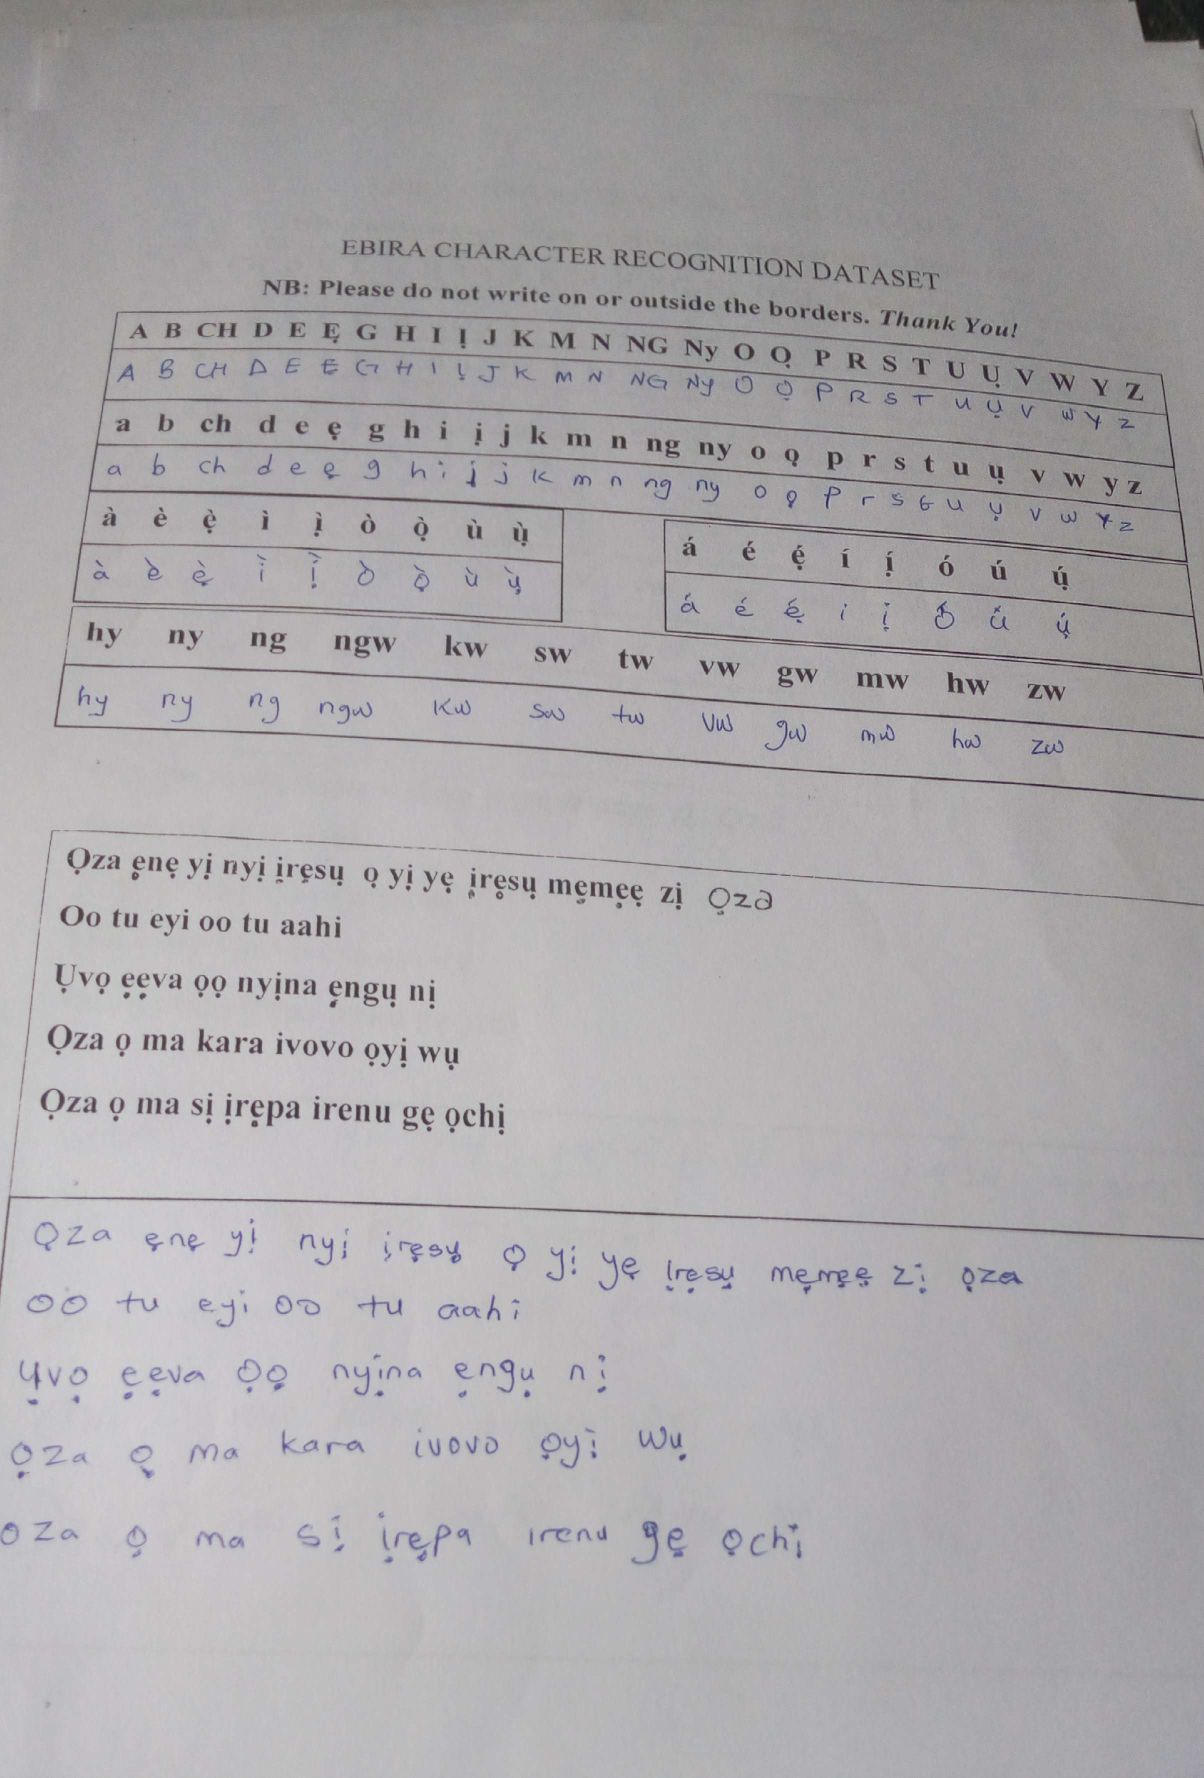 EBIRA CHARACTER RECOGNITION DATASET
NB: Please do not write on or outside the borders. Thank You!
A B CH D E Ẹ G H I Ị J K M N NG Ny O Ọ P R S T U Ụ V W Y Z
A B CH D E Ẹ G H I Ị J K M N NG Ny O Ọ P R S T U Ụ V W Y Z
a b ch d e ẹ g h i ị j k m n ng ny o ọ p r s t u ụ v w y z
a b ch d e ẹ g h i ị j k m n ng ny o ọ p r s t u ụ v w y z
à è ẹ̀ ì ị̀ ò ọ̀ ù ụ̀
à è ẹ̀ ì ị̀ ò ọ̀ ù ụ̀
á é ẹ́ í ị́ ó ú ụ́
á é ẹ́ í ị́ ó ú ụ́
hy ny ng ngw kw sw tw vw gw mw hw zw
hy ny ng ngw kw sw tw vw gw mw hw zw
Ọza ẹnẹ yị nyị ịrẹsụ ọ yị yẹ ịrẹsụ mẹmẹẹ zị Ọza
Oo tu eyi oo tu aahi
Ụvọ ẹẹva ọọ nyịna ẹngụ nị
Ọza ọ ma kara ivovo ọyị wụ
Ọza ọ ma sị ịrẹpa irenu gẹ ọchị
Ọza ẹnẹ yị nyị ịrẹsụ ọ yị yẹ ịrẹsụ mẹmẹẹ zị ọza
oo tu eyi oo tu aahi
Ụvọ ẹẹva ọọ nyịna ẹngụ nị
ọza ọ ma kara ivovo ọyị wụ
oza ọ ma sị ịrẹpa irenu gẹ ọchị